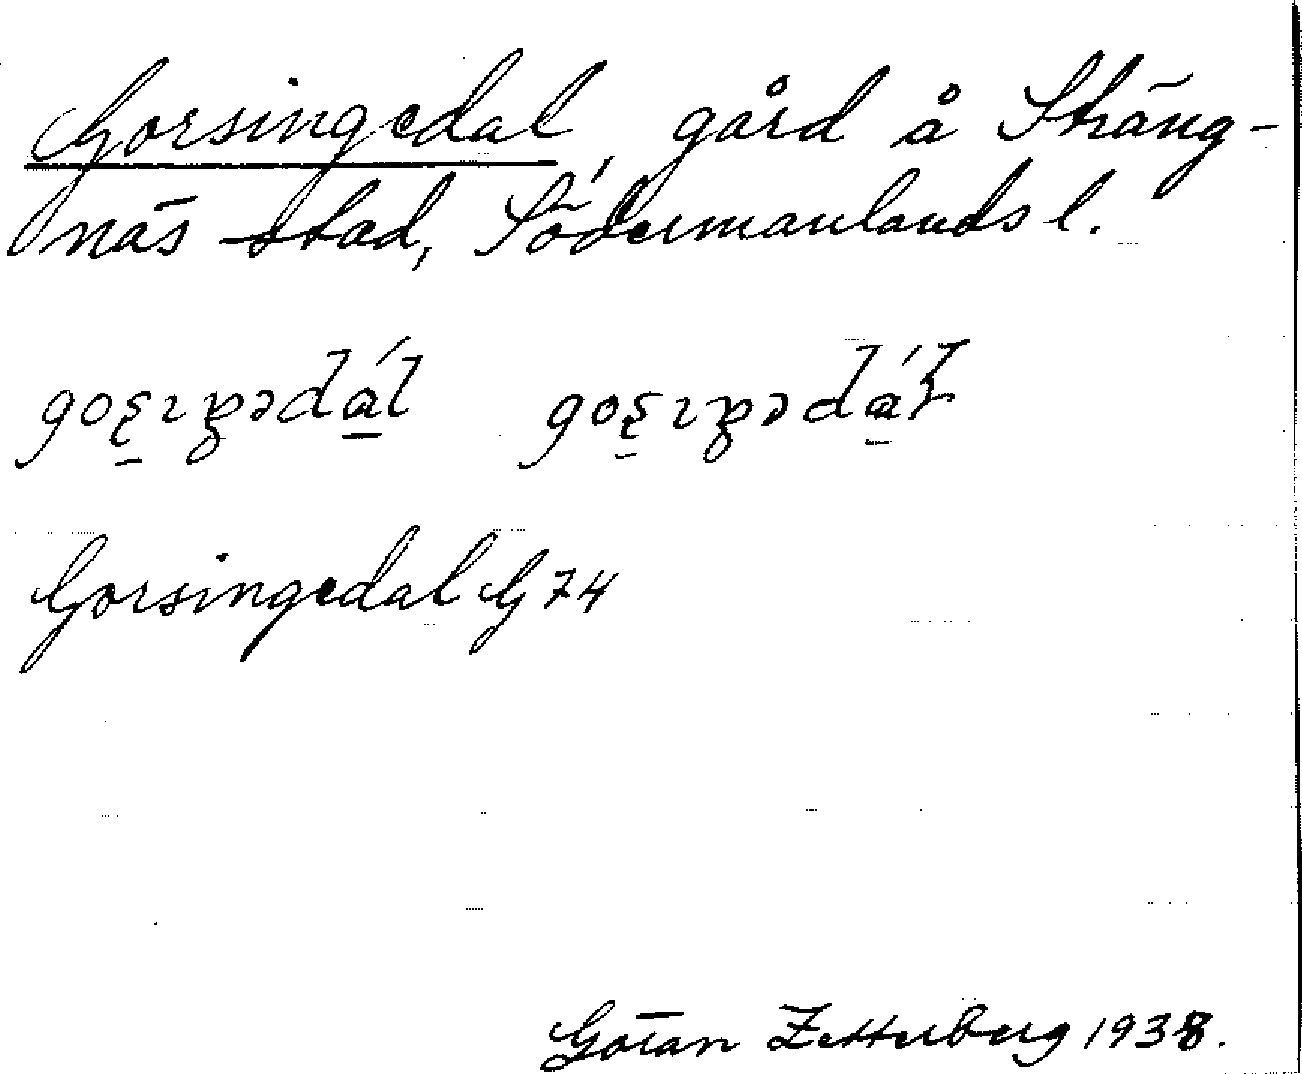 Gorsingedal, gård å Sträng-
näs stad, Södermanlands l.
Gorsingedal G 74
Göran Zetterberg 1938.